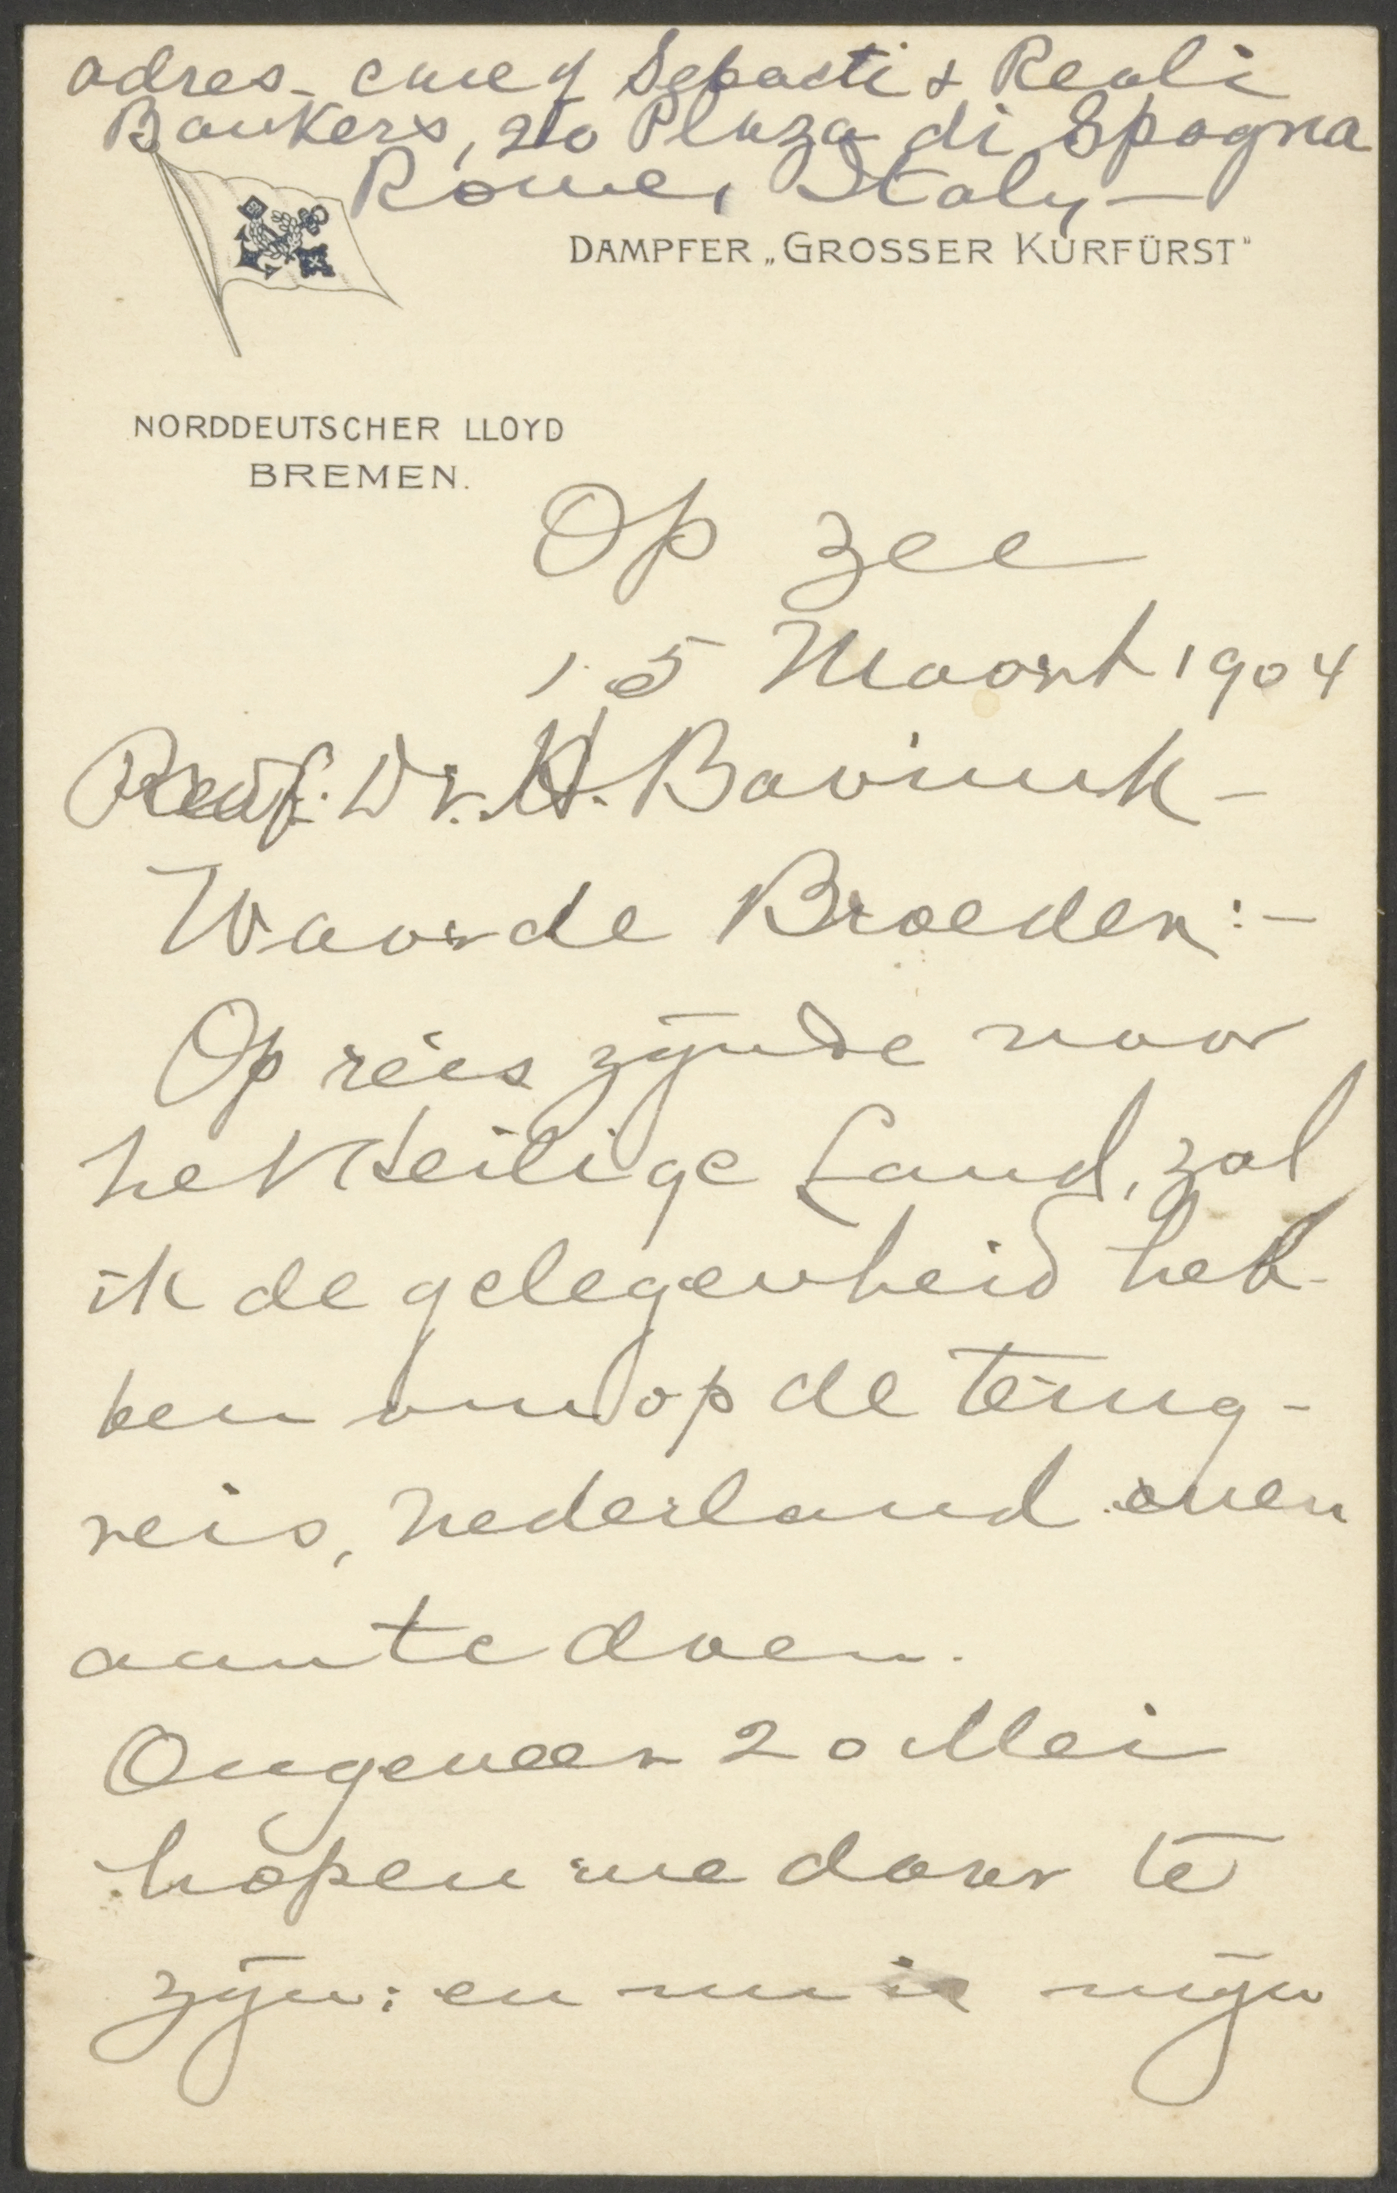 adres - care of Sebasti & Reali
Bankers, 20 Plaza di Spagna
Rome, Italy —
DAMPFER „GROSSER KURFÜRST"
NORDDEUTSCHER LLOYD
BREMEN.
Op zee
15 Maart 1904
Prof. Dr. H. Bavinck -
Waarde Broeder: -
Op reis zijnde naar
het Heilige Land, zal
ik de gelegenheid heb-
ben om op de terug-
reis, Nederland even
aan te doen.
Ongeveer 20 Mei
hopen we daar te
zijn: en nu is mijn